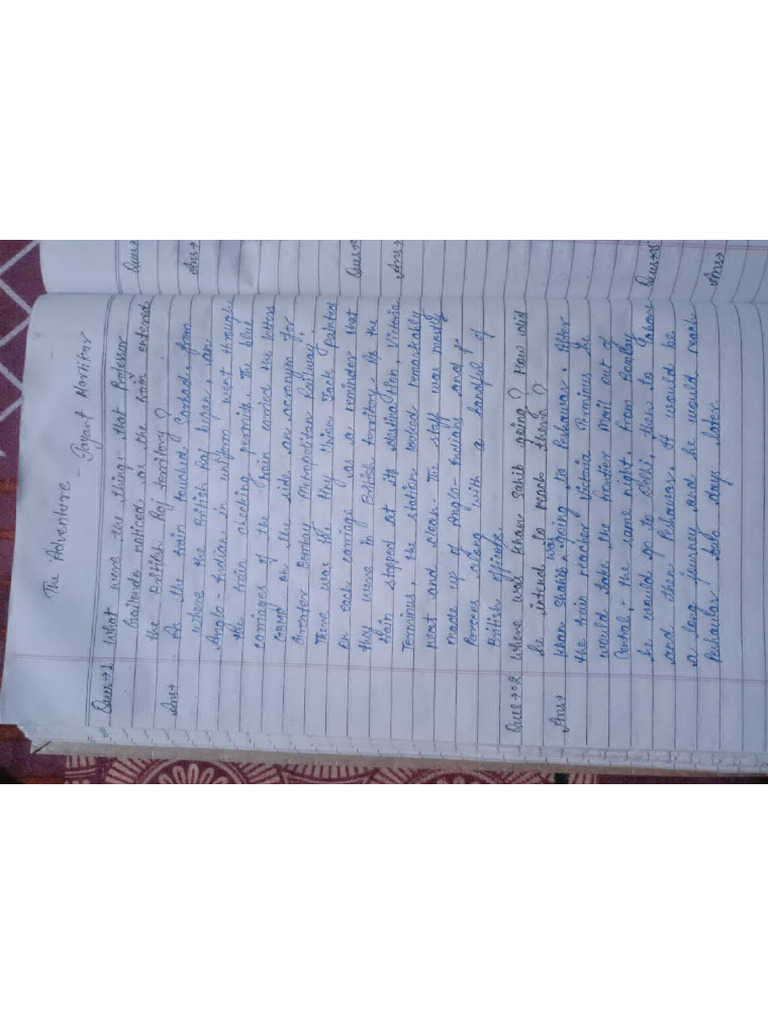 The Adventure - Jayant Narlikar
Ques→1 What were the things that Professor
Gaitonde noticed as the train entered
the British Raj territory?
Ans→ As the train touched Sarhad, from
where the British Raj began, an
Anglo-Indian in uniform went through
the train checking permits. The blut
carriages of the train carried the letters
GBMR on the side an acronym for
Greater Bombay Metropolitan Railway.
There was the tiny Union Jack painted
on each carriage as a reminder that
they were in British territory. As the
train stopped at its destination, Victoria
Terminus, the station looked remarkably
neat and clean. The staff was mostly
made up of Anglo-Indians and
Parsees along with a handful of
British officers.
Ques→02 Where was Khan Sahib going? How did
he intend to reach there?
Ans→ Khan Shaib was going to Peshawar. After
the train reacher Victoria Terminus he
would take the frontier Mail out of
Central, the same night. From Bombay
he would go to Delhi, then to Lahore
and then Peshawar. It would be
a long journey and he would reach
Peshawar two days later.
Ques→
Ans→
Ques→
Ans→
Ques→
Ans→